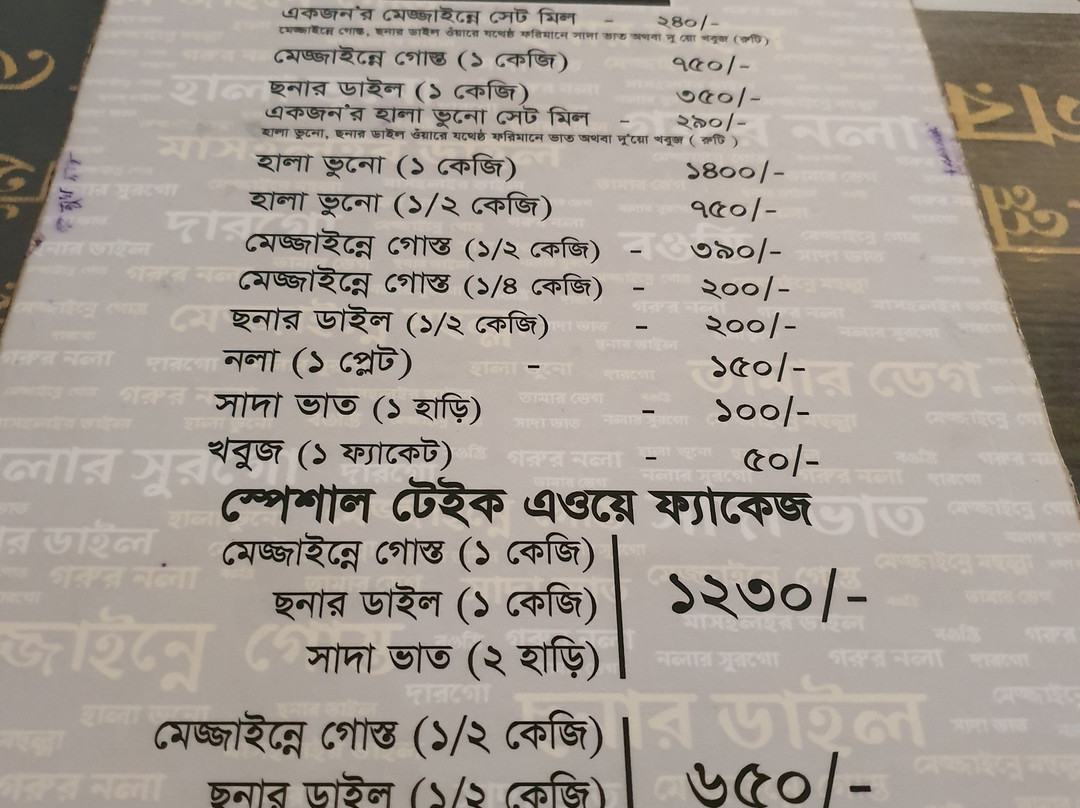 একজন'র মেজ্জাইন্নে সেট মিল - ২৪০/-
মেজ্জাইন্নে গোস্ত, ছনার ডাইল ওঁয়ারে যথেষ্ঠ ফরিমানে সাদা ভাত অথবা দু'য়ো খবুজ (রুটি)
মেজ্জাইন্নে গোস্ত (১ কেজি) ৭৫০/-
ছনার ডাইল (১ কেজি) ৩৫০/-
একজন'র হালা ভুনো সেট মিল - ২৯০/-
হালা ভুনো, ছনার ডাইল ওঁয়ারে যথেষ্ঠ ফরিমানে ভাত অথবা দু'য়ো খবুজ ( রুটি )
হালা ভুনো (১ কেজি) ১৪০০/-
হালা ভুনো (১/২ কেজি) ৭৫০/-
মেজ্জাইন্নে গোস্ত (১/২ কেজি) - ৩৯০/-
মেজ্জাইন্নে গোস্ত (১/৪ কেজি) - ২০০/-
ছনার ডাইল (১/২ কেজি) - ২০০/-
নলা (১ প্লেট) - ১৫০/-
সাদা ভাত (১ হাড়ি) - ১০০/-
খবুজ (১ ফ্যাকেট) - ৫০/-
স্পেশাল টেইক এওয়ে ফ্যাকেজ
মেজ্জাইন্নে গোস্ত (১ কেজি)
ছনার ডাইল (১ কেজি) ১২৩০/-
সাদা ভাত (২ হাড়ি)
মেজ্জাইন্নে গোস্ত (১/২ কেজি)
ছনার ডাইল (১/২ কেজি) ৬৫০/-